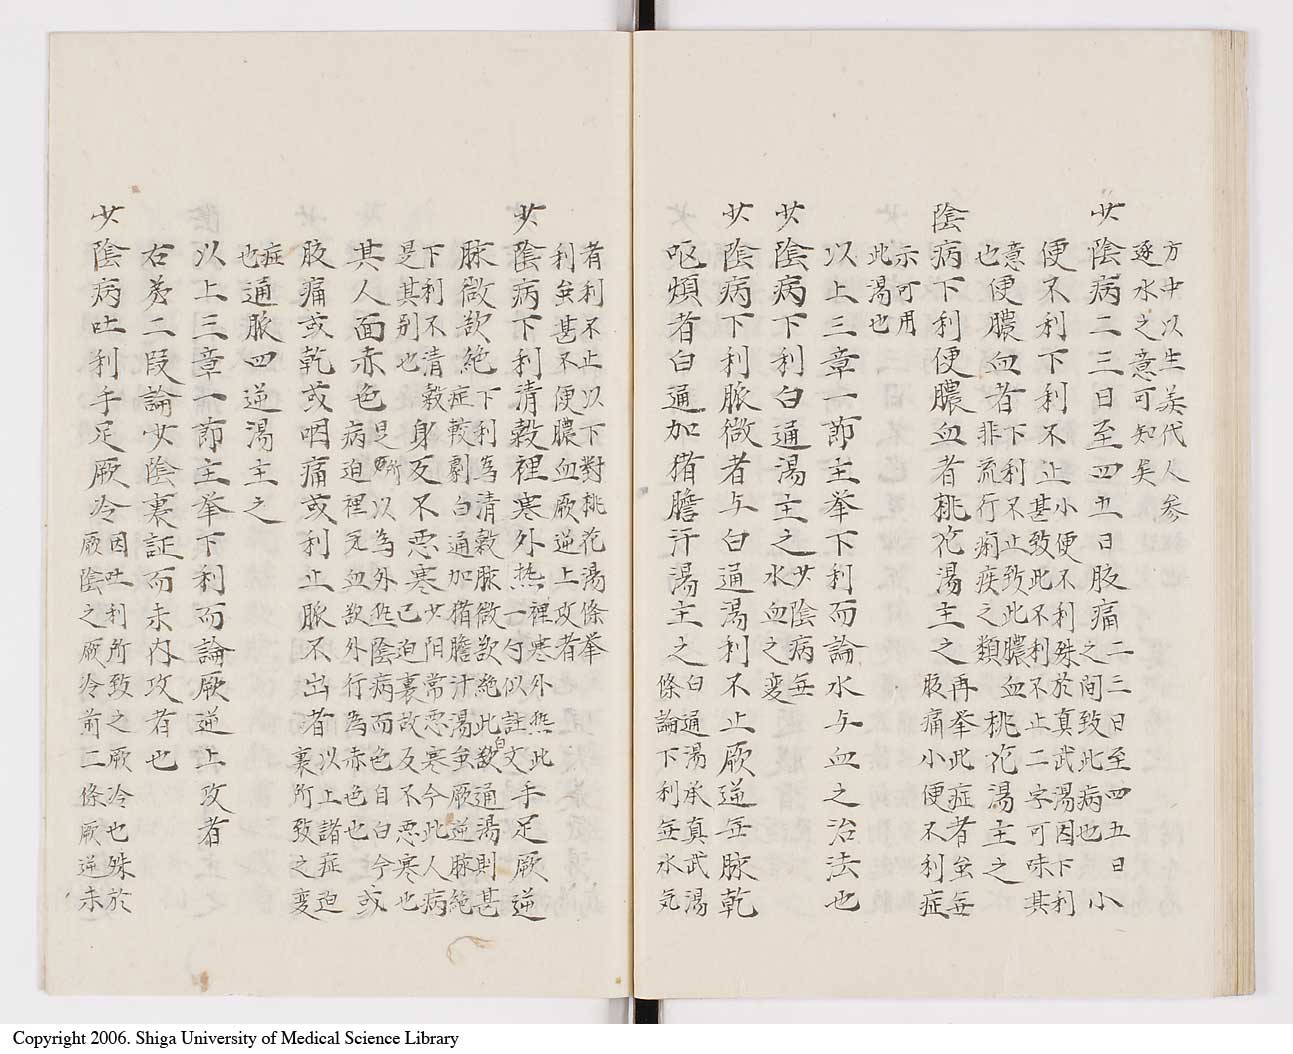 方中以生姜代人参
逐水之意可知矣
少陰病二三日至四五日腹痛
二三日至四五日
之間致此病也
小
便不利下利不止
小便不利殊於真武湯因下利
甚致此不利不止二字可味其
意
也
便膿血者
下利不止致此膿血
非流行痢疾之類
桃花湯主之
陰病下利便膿血者桃花湯主之
再挙此症者虽無
腹痛小便不利症
示可用
此湯也
以上三章一節主挙下利而論水与血之治法也
少陰病下利白通湯主之
少陰病無
水血之変
少陰病下利脈微者与白通湯利不止厥逆無脈乾
呕煩者白通加猪膽汁湯主之
白通湯承真武湯
條論下利無水気
者利不止以下對桃花湯條挙
利虽甚不便膿血厥逆上攻者
少陰病下利清穀裡寒外热
裡寒外热此
一句似註文
手足厥逆
脉微欲絶
下利為清穀脉微欲絶此白通湯則甚
症較劇白通加猪膽汁湯虽厥逆脉絶
下利不清穀
是其别也
身反不惡寒
少阳常惡寒今此人病
已迫裏故反不惡寒也
其人面赤色
是所以為外热陰病而色自白今
病迫裡无血欲外行為赤色也
或
腹痛或乾或咽痛或利止脈不出者
以上諸症迫
裏所致之変
症
也
通脈四逆湯主之
以上三章一節主挙下利而論厥逆上攻者
右第二段論少陰裏証而未内攻者也
少陰病吐利手足厥冷
因吐利所致之厥冷也殊於
厥陰之厥冷前二條厥逆未
Copyright 2006. Shiga University of Medical Science Library